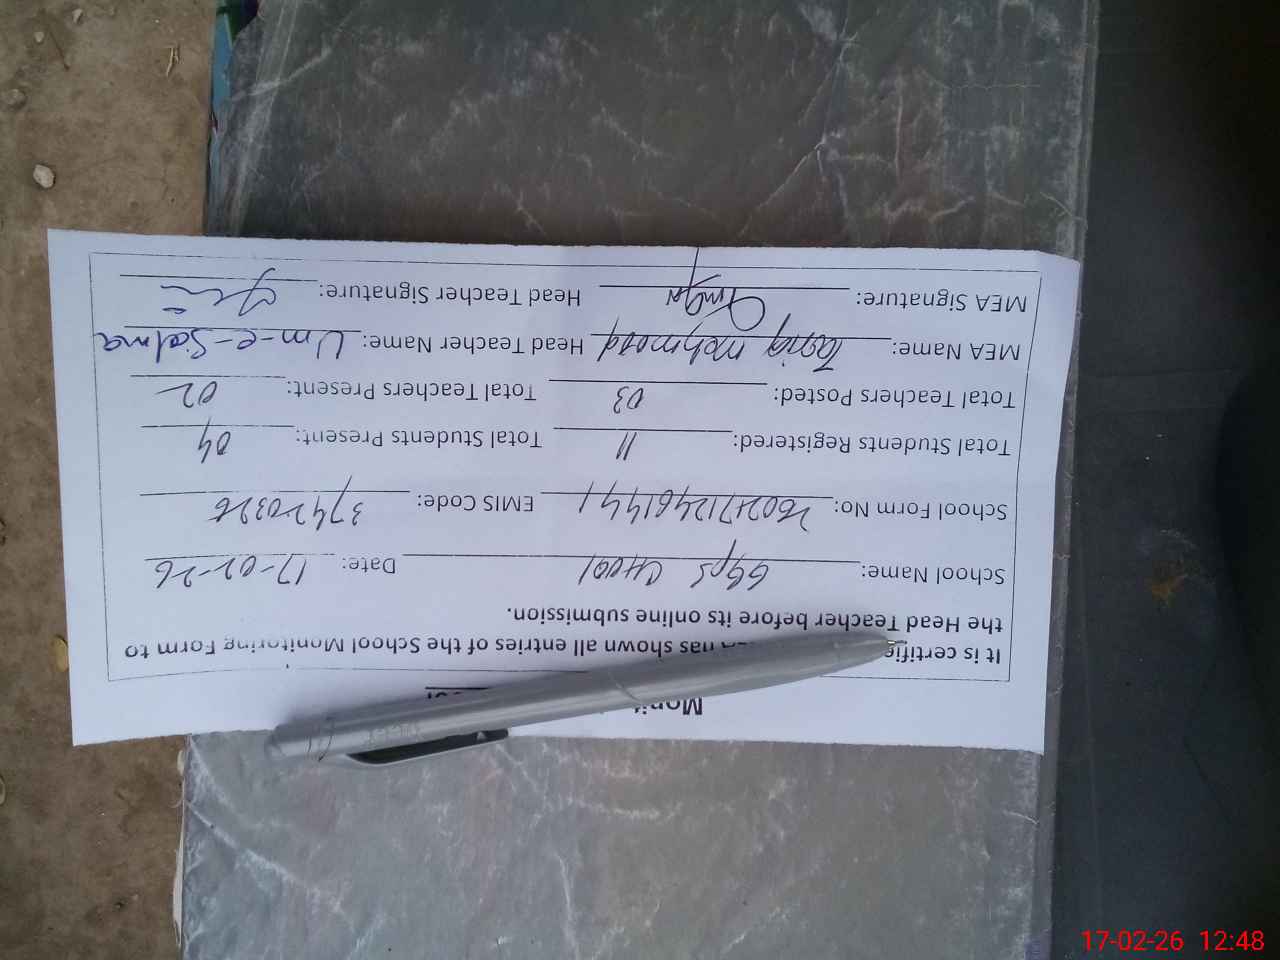 It is certifie has shown all entries of the School Monitoring Form to
the Head Teacher before its online submission.
School Name: GGPS Date: 17-02-26
School Form No: EMIS Code: 37420326
Total Students Registered: 11 Total Students Present: 04
Total Teachers Posted: 03 Total Teachers Present: 02
MEA Name: Tariq mehmood Head Teacher Name: Um-e-Salma
MEA Signature: Head Teacher Signature:
17-02-26 12:48